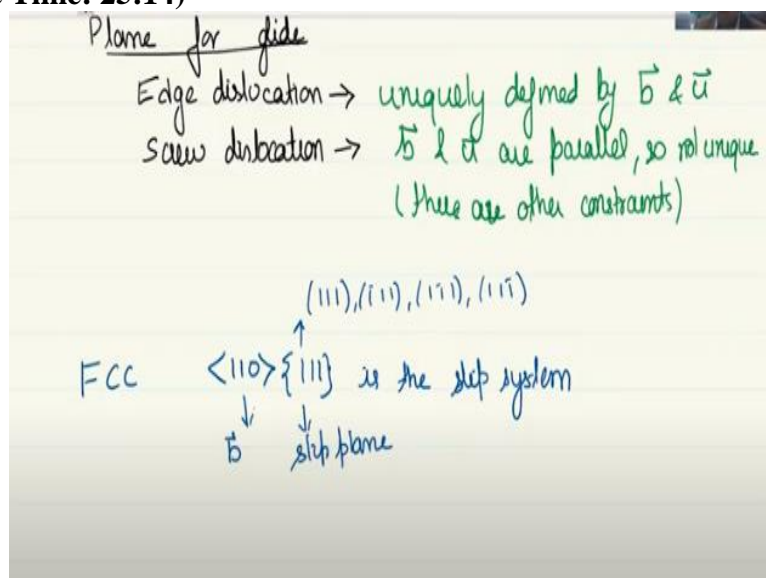 Time: 25:14)
Plane for glide
Edge dislocation → uniquely defined by b⃗ & u⃗
Screw dislocation → b⃗ & u⃗ are parallel, so not unique
(there are other constraints)
(111), (1̄11), (11̄1), (111̄)
↑
FCC <110>{111} is the slip system
↓ ↓
b⃗ slip plane